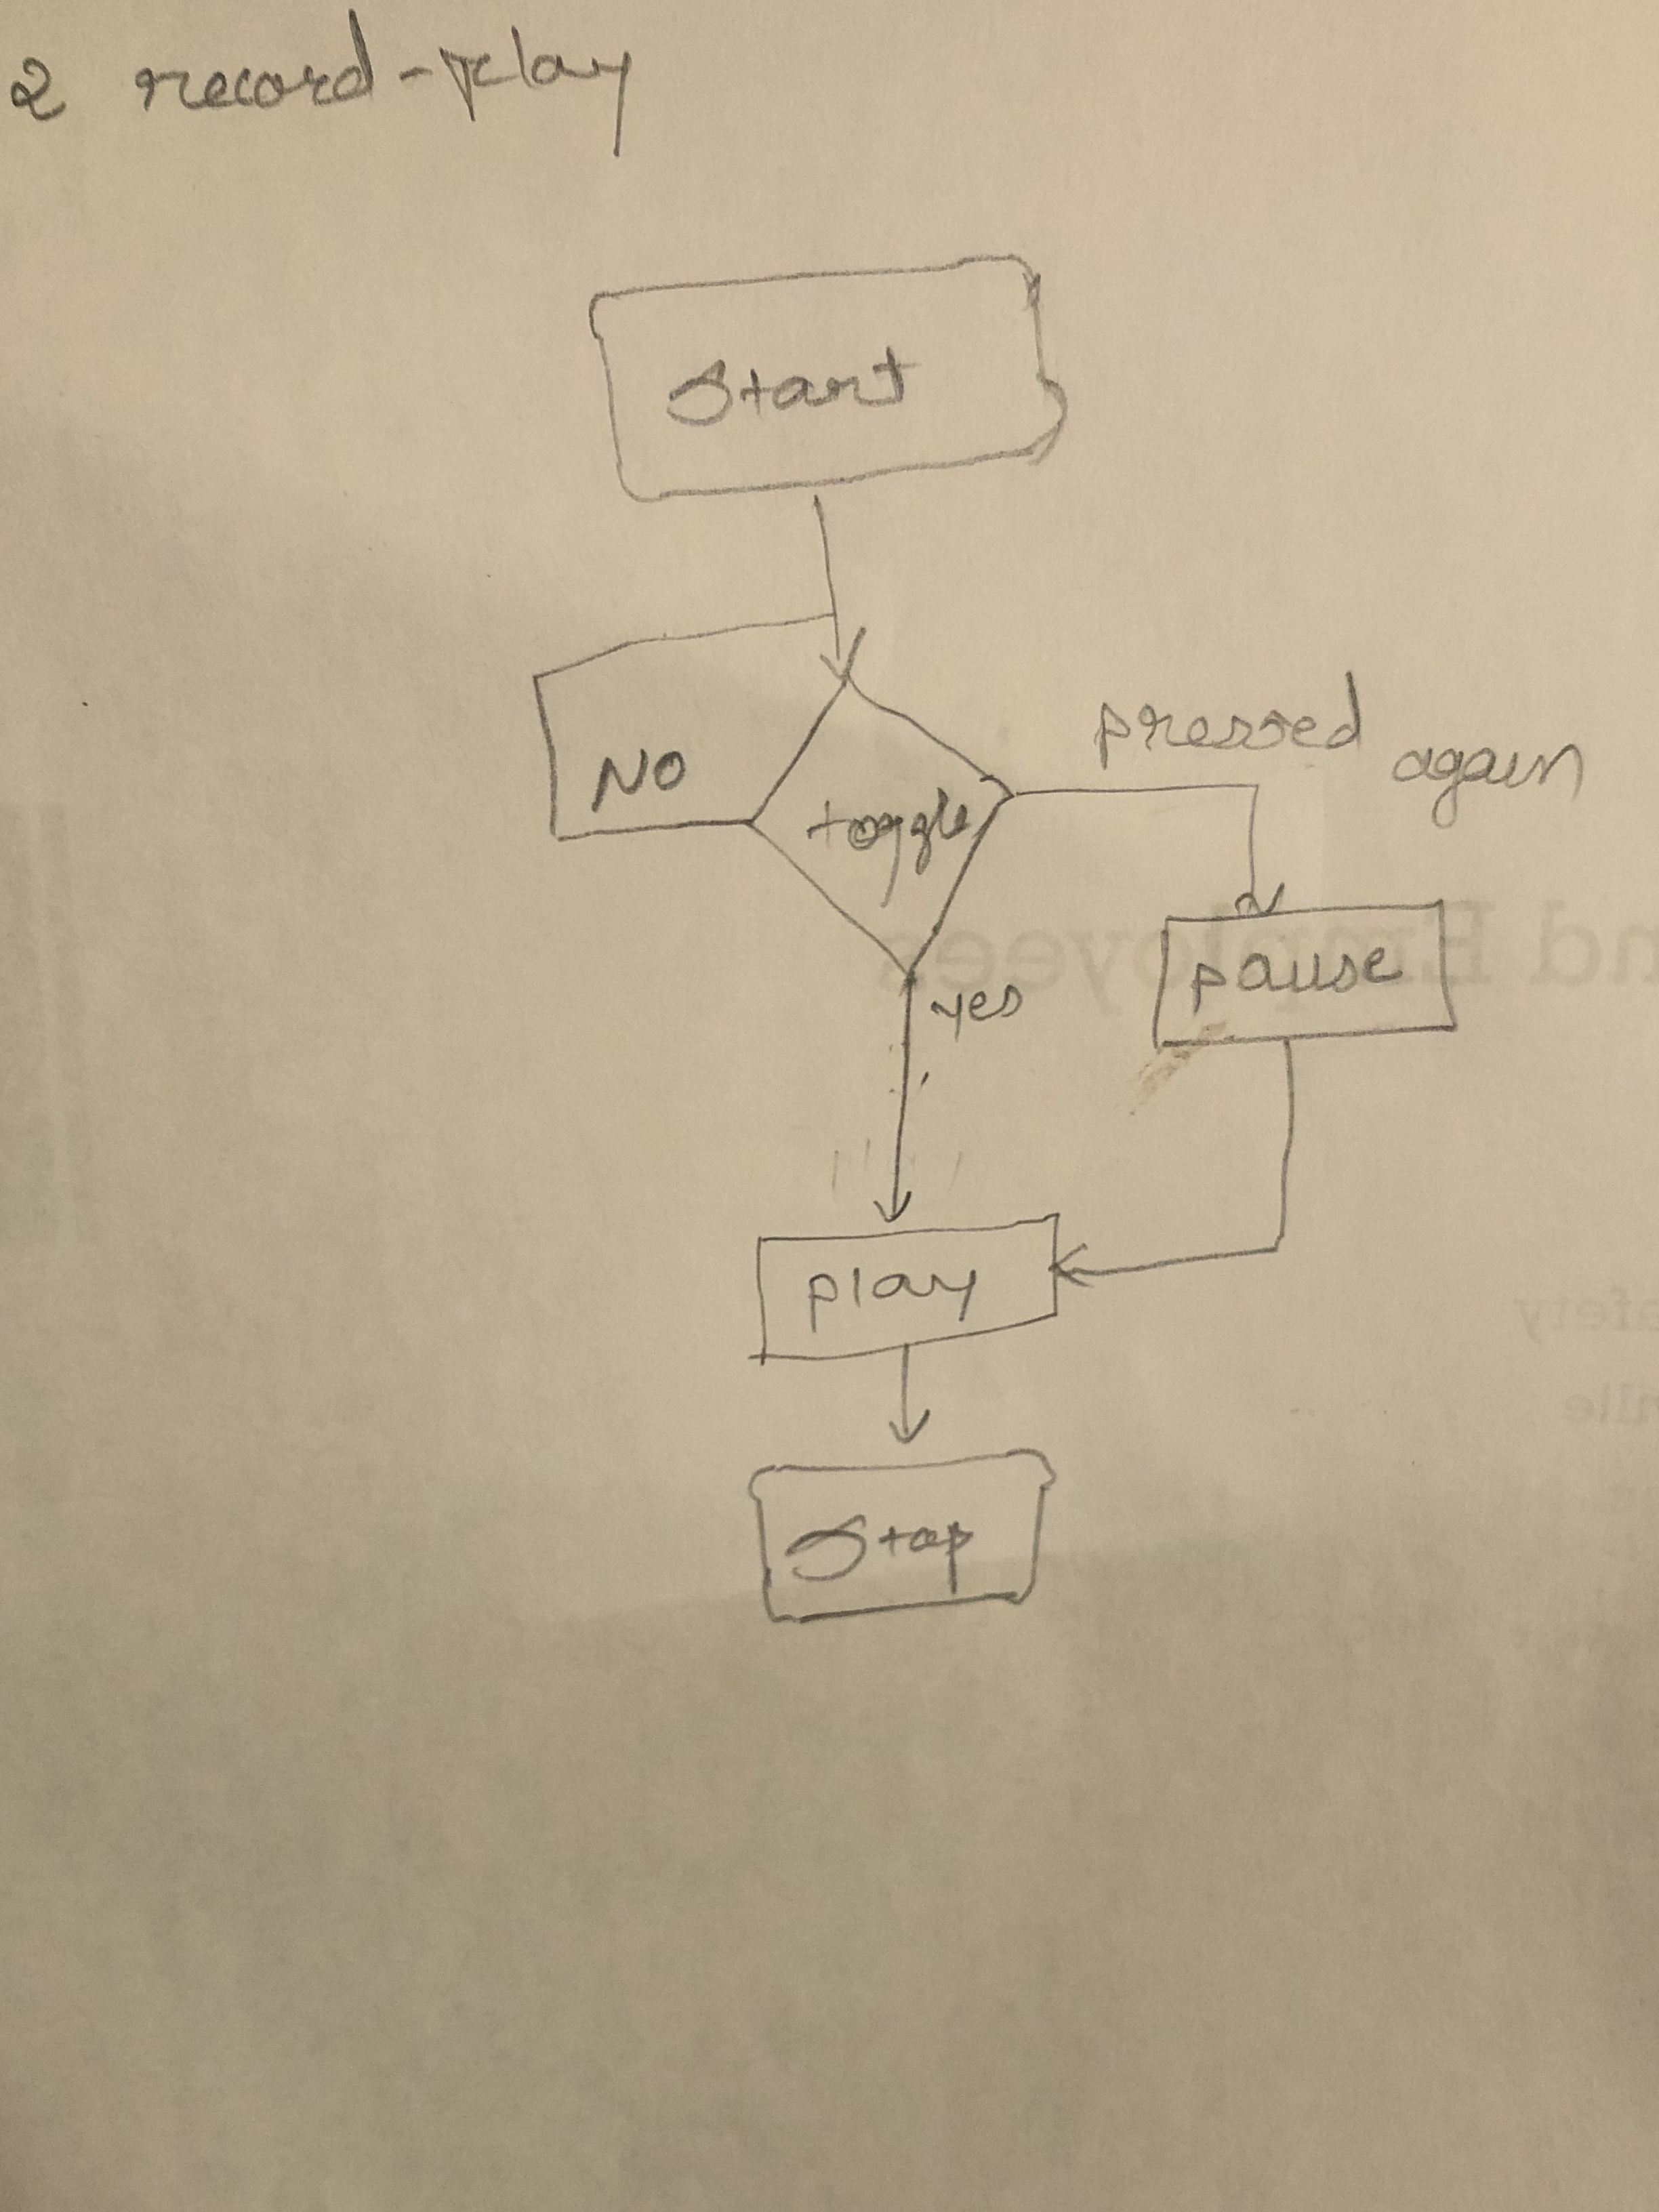 2 record-play
Start
NO
toggle
pressed again
yes
pause
play
Stop
nd Employees
afety